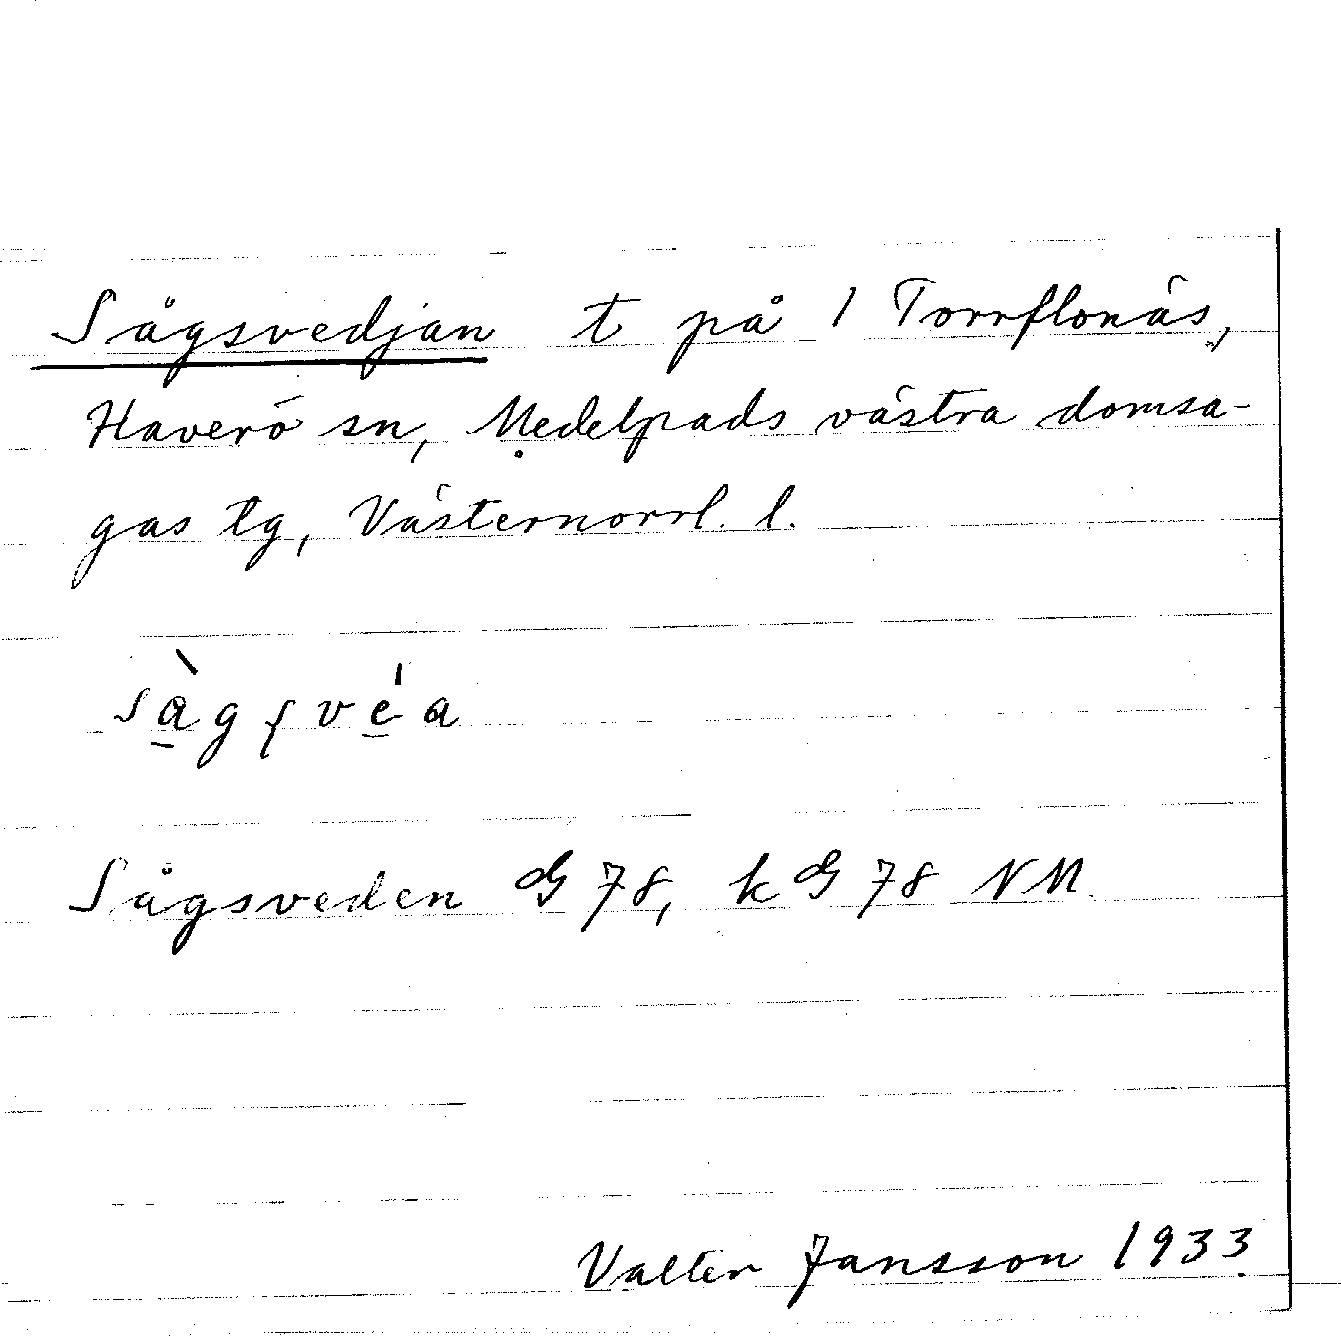 Sågsvedjan t på 1 Torrflonäs,
Haverö sn, Medelpads västra domsa-
gas tg, Västernorrl. l.
sàgʃvéa
Sågsveden G 78, k G 78 NM.
Valter Jansson 1933.